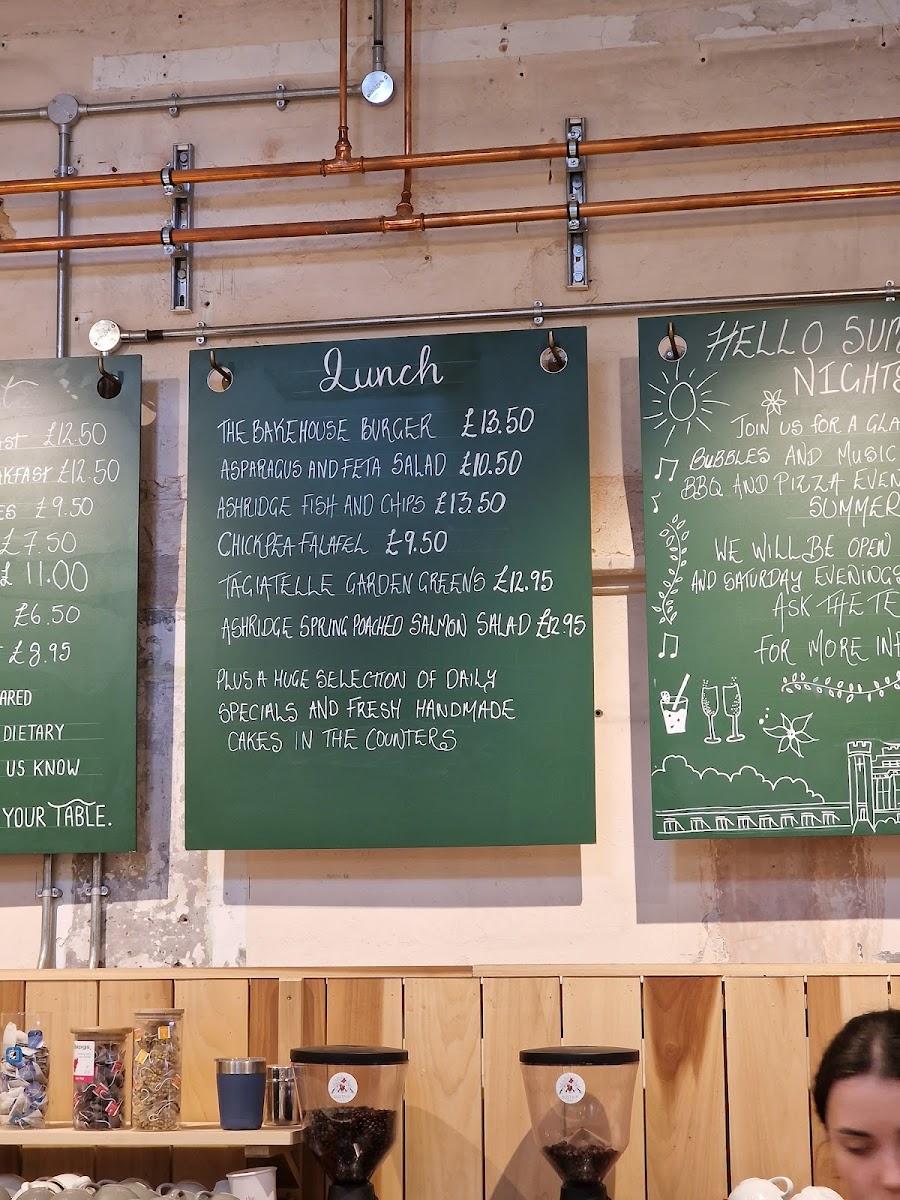 £12.50
£12.50
£9.50
£7.50
£11.00
£6.50
£8.95
DIETARY
US KNOW
YOUR TABLE.
Lunch
THE BAKEHOUSE BURGER £13.50
ASPARAGUS AND FETA SALAD £10.50
ASHRIDGE FISH AND CHIPS £13.50
CHICKPEA FALAFEL £9.50
TAGIATELLE GARDEN GREENS £12.95
ASHRIDGE SPRING POACHED SALMON SALAD £12.95
PLUS A HUGE SELECTION OF DAILY
SPECIALS AND FRESH HANDMADE
CAKES IN THE COUNTERS
HELLO SUM
NIGHTS
JOIN US FOR A GLA
BUBBLES AND MUSIC
BBQ AND PIZZA EVEN
SUMMER
WE WILL BE OPEN
AND SATURDAY EVENINGS
ASK THE TE
FOR MORE INF